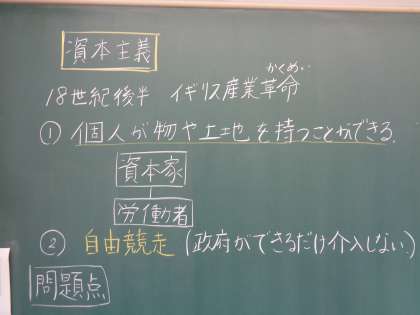 資本主義
かくめい
18世紀後半 イギリス産業革命
① 個人が物や土地を持つことができる.
資本家
労働者
② 自由競走 (政府ができるだけ介入しない)
問題点